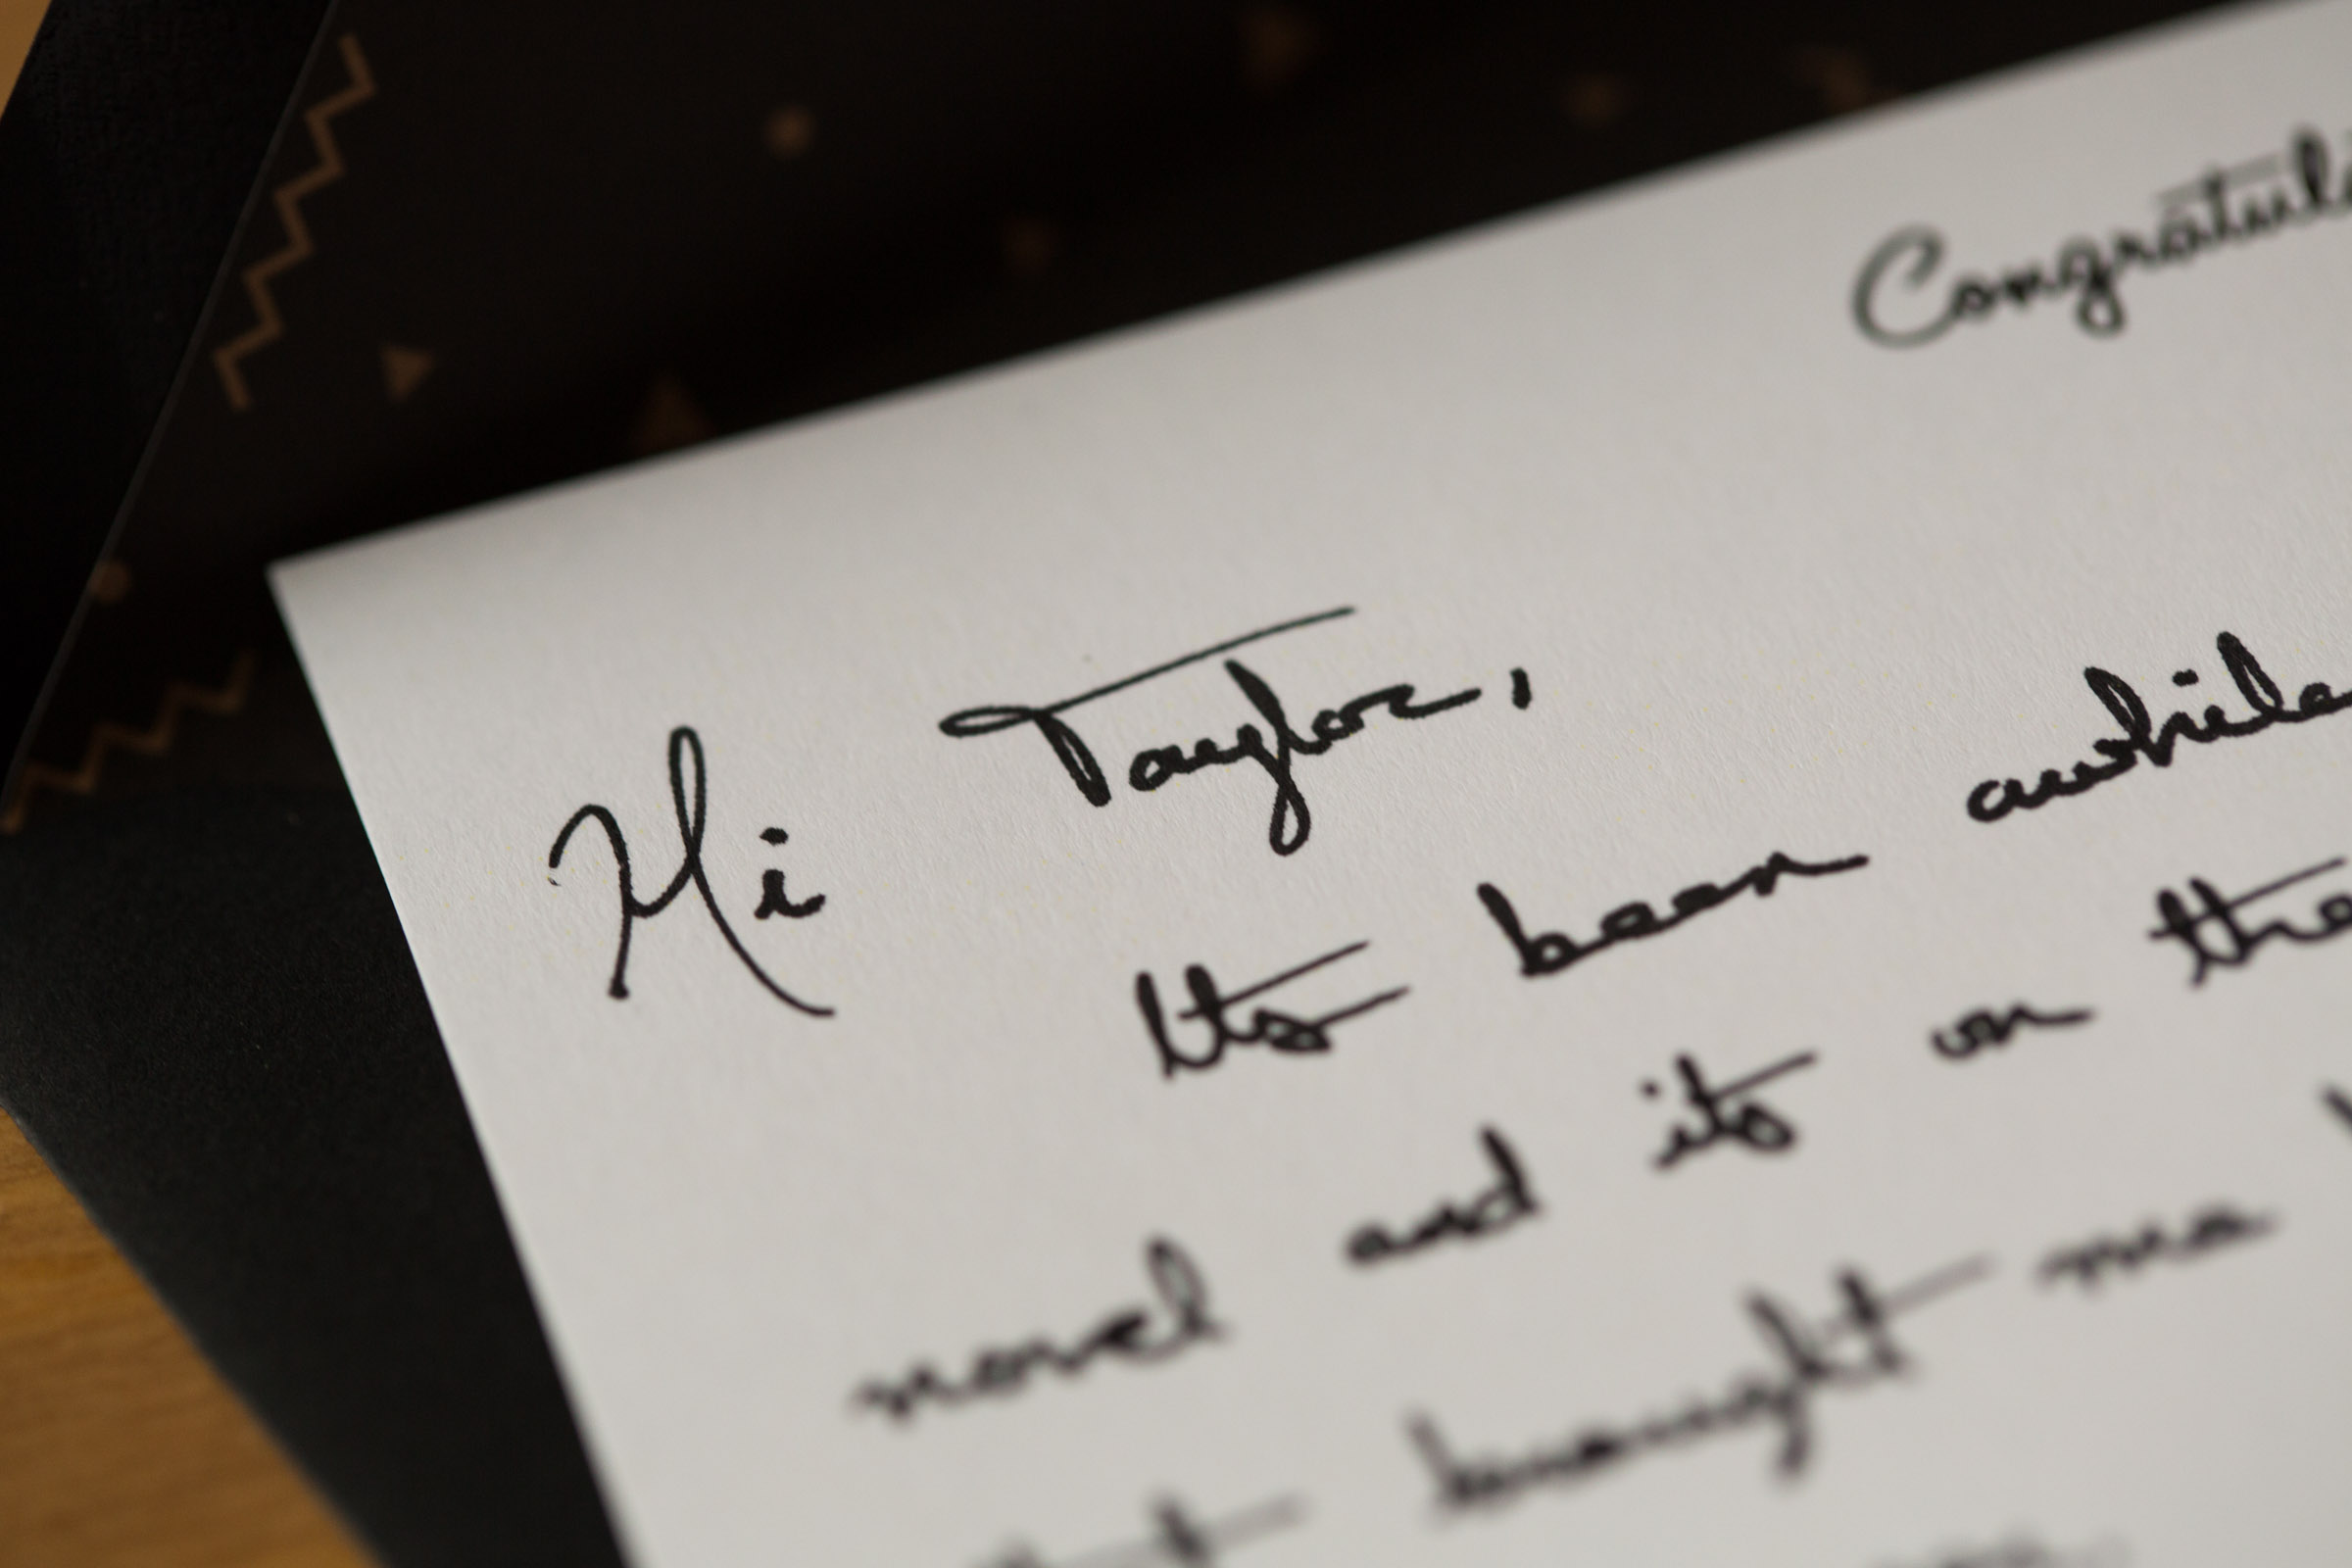 Congratul
Hi Taylor,
Its been awhile
novel and its on the
brought me